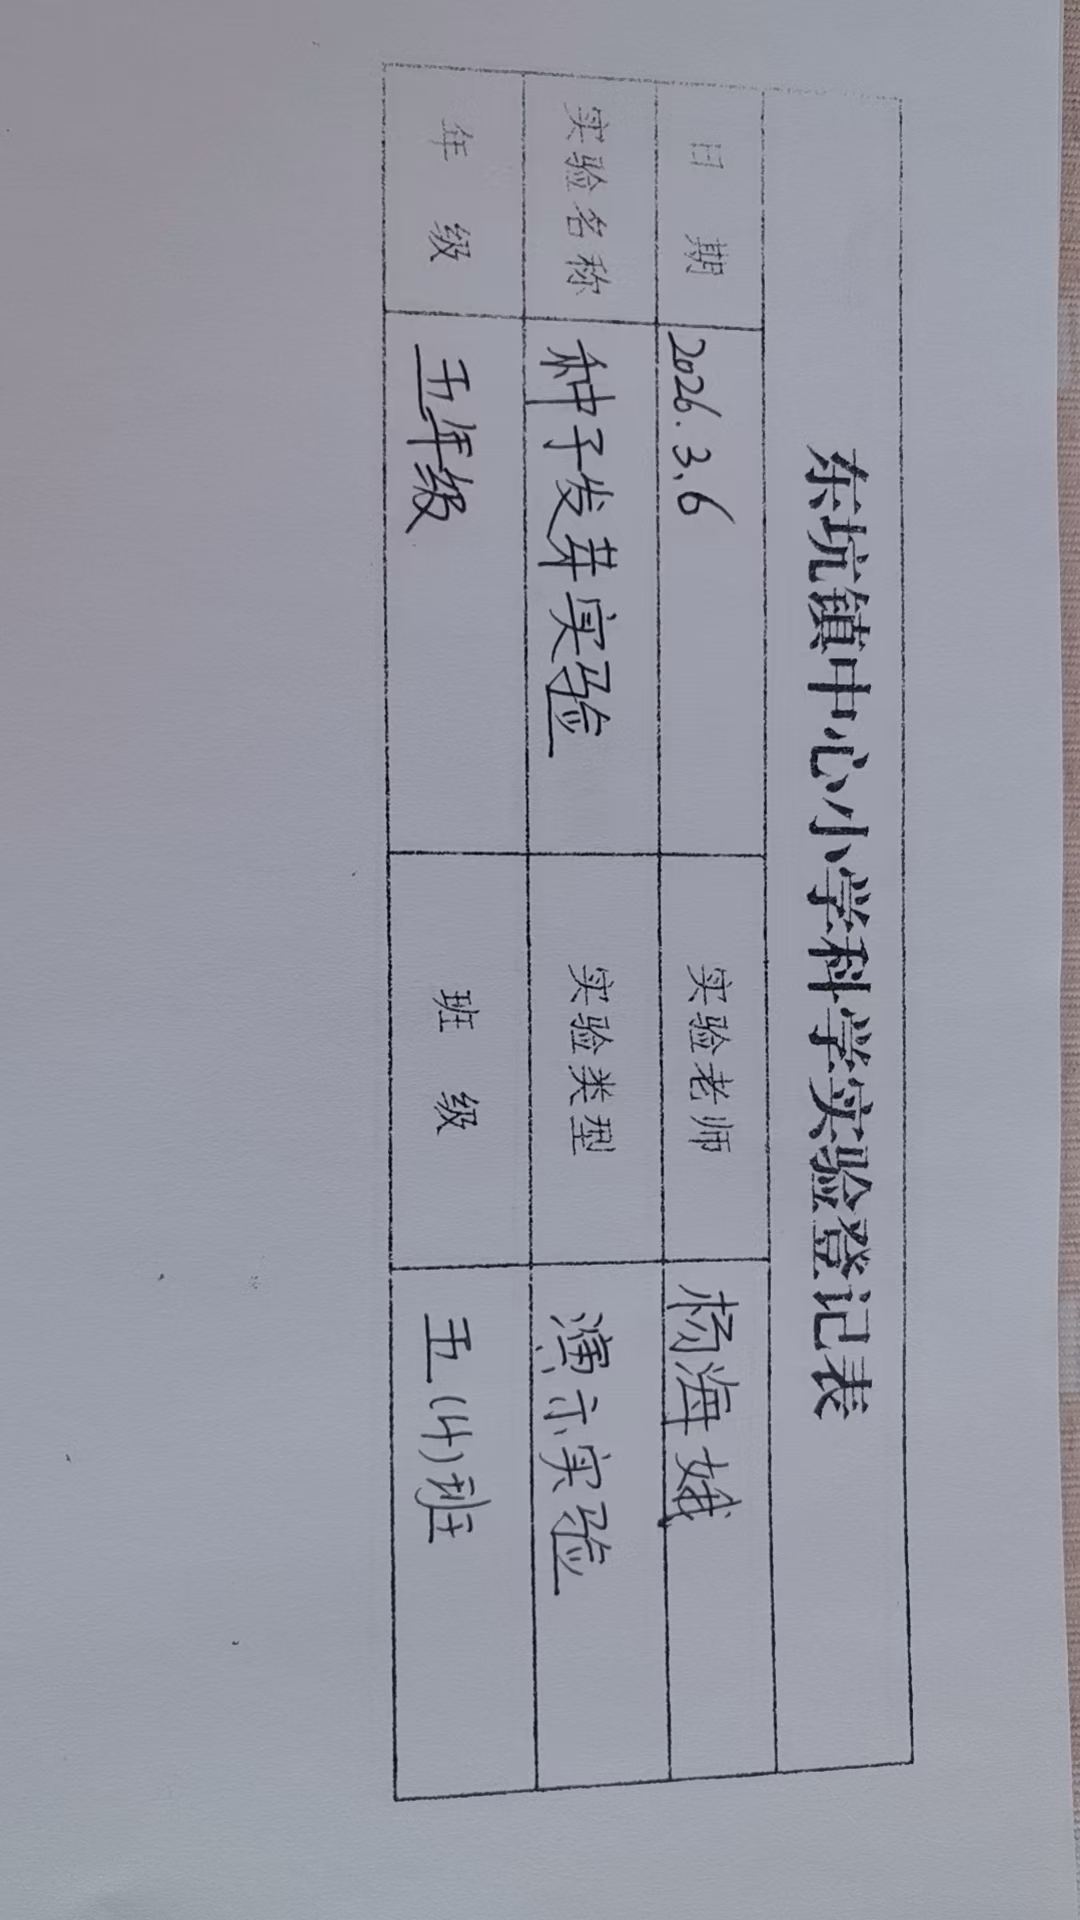 东坑镇中心小学科学实验登记表
日 期 2026.3.6 实验老师 杨海娥
实验名称 种子发芽实验 实验类型 演示实验
年 级 五年级 班 级 五(4)班